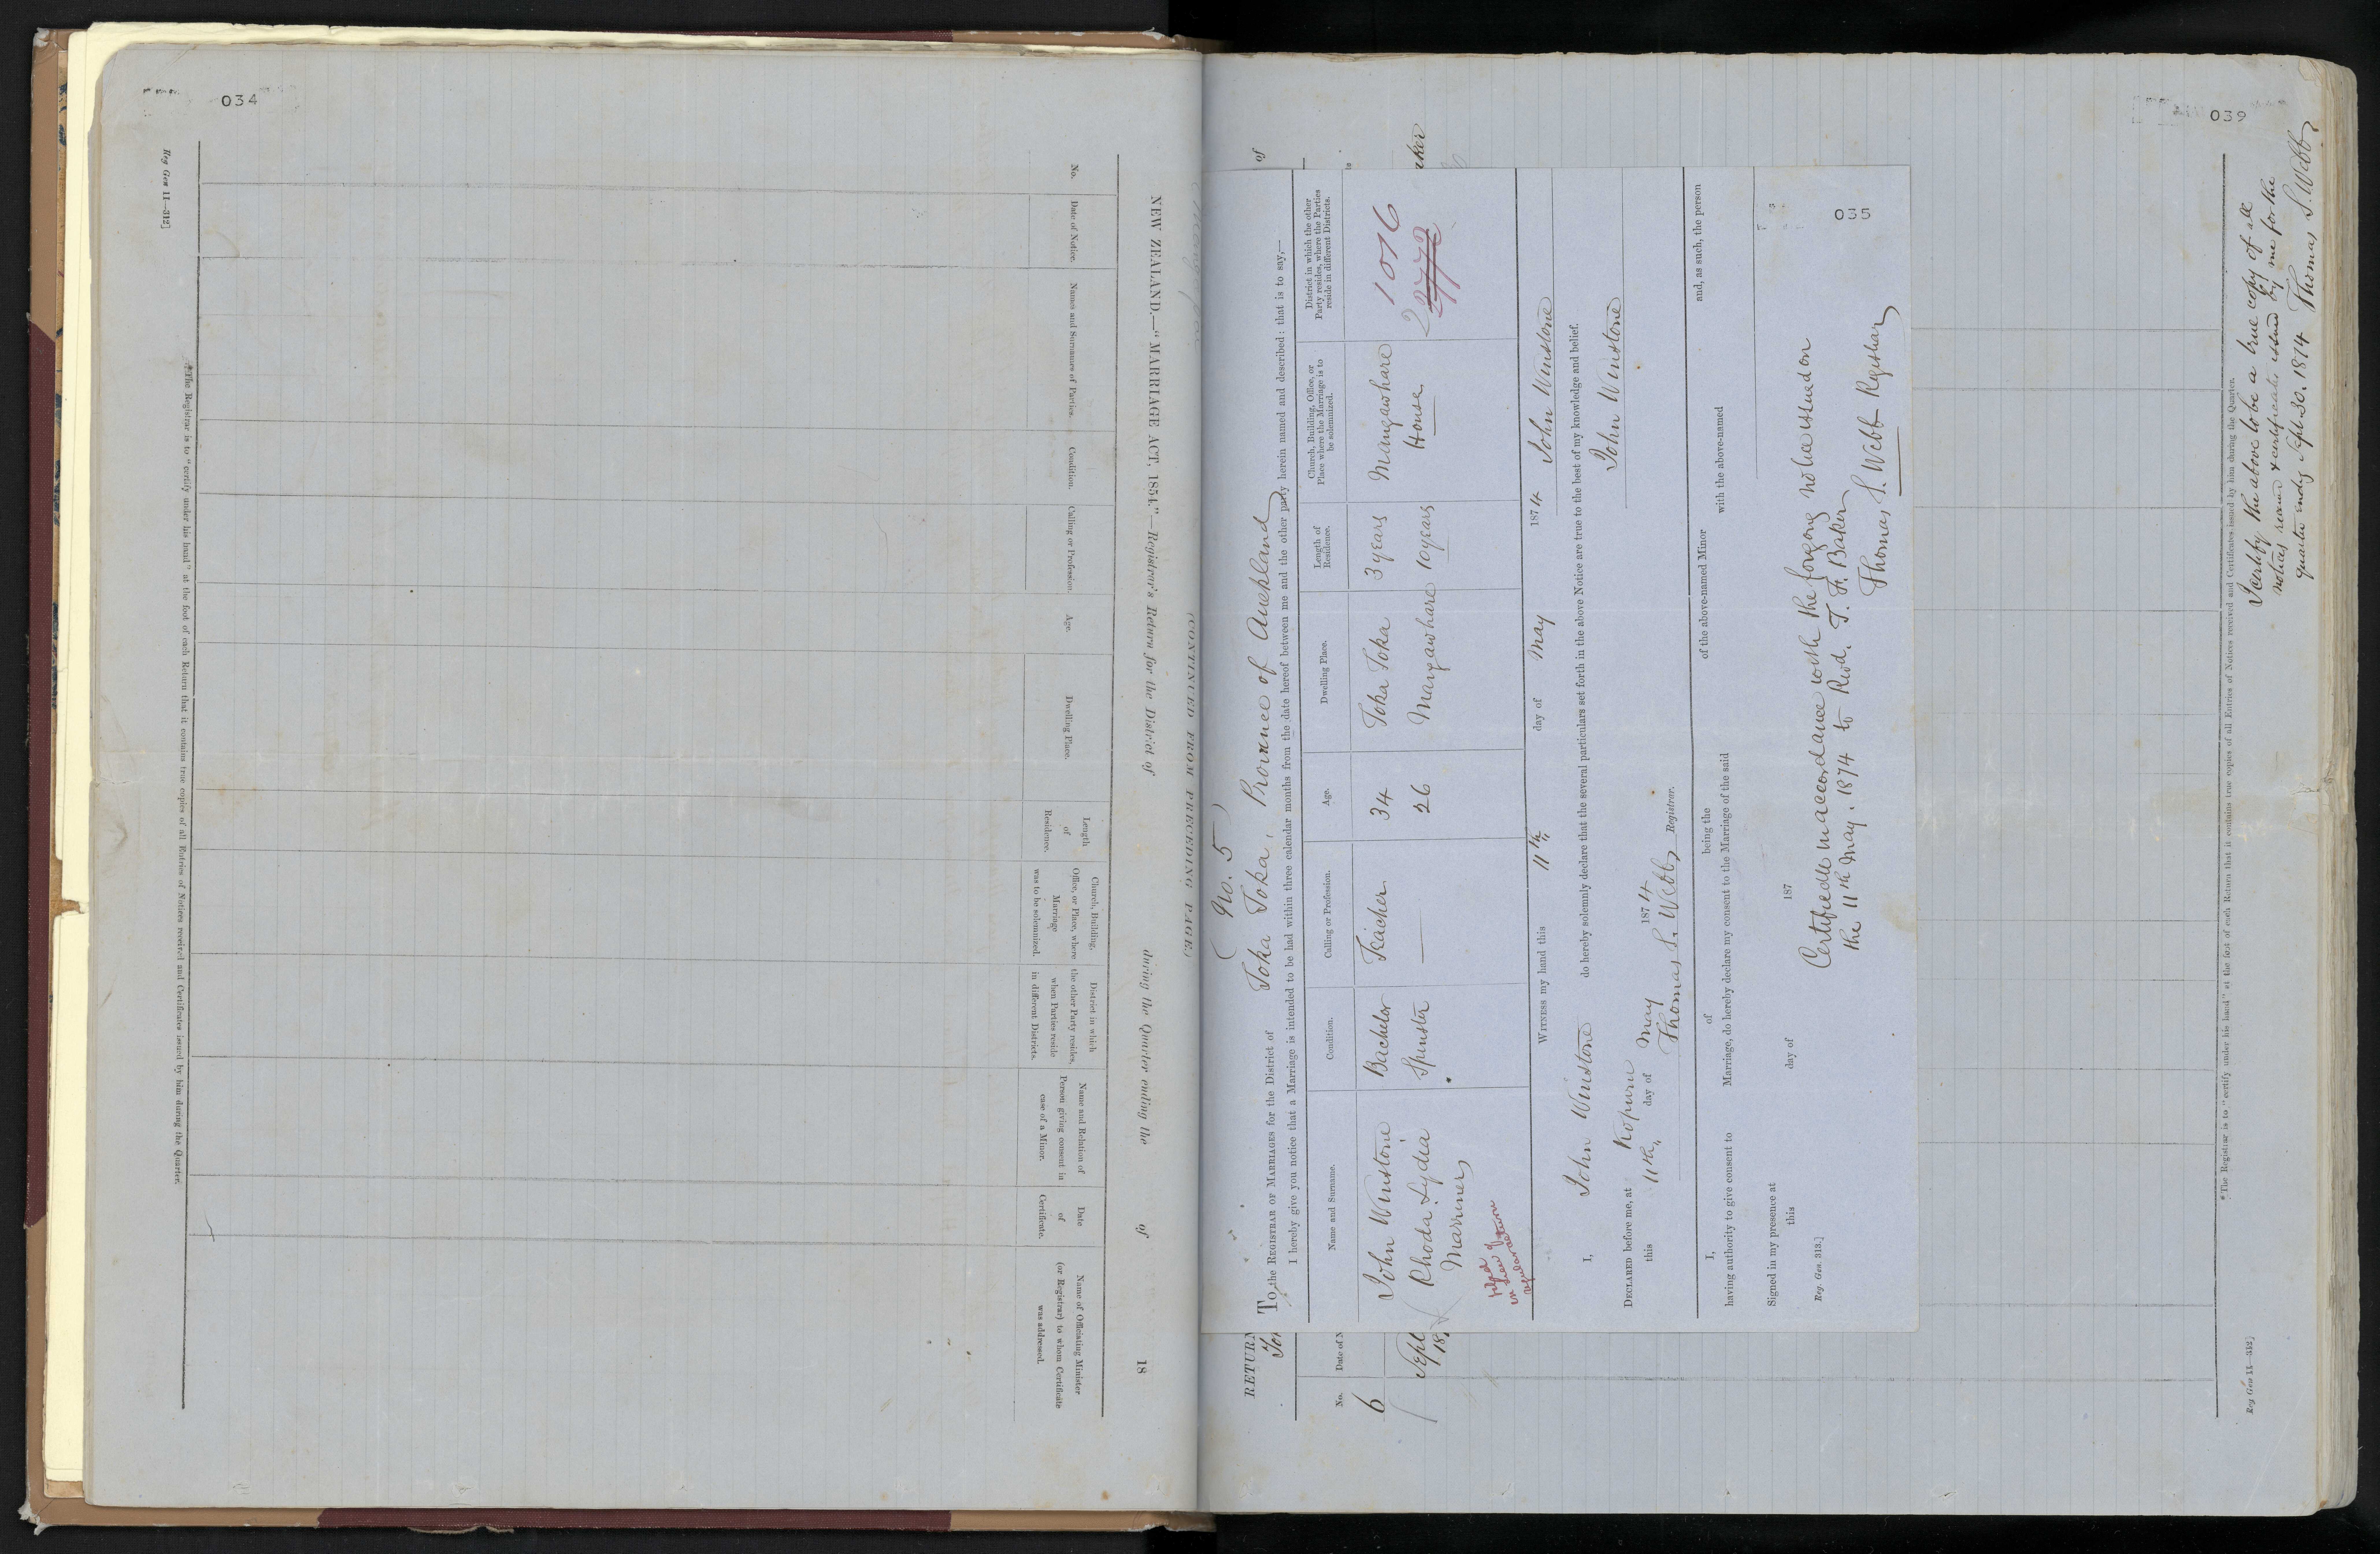 034
NEW ZEALAND.—"MARRIAGE ACT, 1854."—Registrar's Return for the District of during the Quarter ending the of 18
(CONTINUED FROM PRECEDING PAGE.)
No.
Date of Notice.
Names and Surnames of Parties.
Condition.
Calling or Profession.
Age.
Dwelling Place.
Length
of
Residence.
Church, Building,
Office, or Place, where
Marriage
was to be solemnized.
District in which
the other Party resides,
when Parties reside
in different Districts.
Name and Relation of
Person giving consent in
case of a Minor.
Date
of
Certificate.
Name of Officiating Minister
(or Registrar) to whom Certificate
was addressed.
*The Registrar is to "certify under his hand" at the foot of each Return that it contains true copies of all Entries of Notices received and Certificates issued by him during the Quarter.
Reg Gen 11—312]
RETURN
of
No.
Date of N
6
Sept
18
aker
(No. 5)
To the REGISTRAR OF MARRIAGES for the District of Toka Toka, Province of Auckland
I hereby give you notice that a Marriage is intended to be had within three calendar months from the date hereof between me and the other party herein named and described: that is to say,—
Name and Surname.
Condition.
Calling or Profession.
Age.
Dwelling Place.
Length of
Residence.
Church, Building, Office, or
Place where the Marriage is to
be solemnized.
District in which the other
Party resides, where the Parties
reside in different Districts.
John Winstone Bachelor Teacher 34 Toka Toka 3 years Mangawhare House
Rhoda Lydia Marriner Spinster — 26 Mangawhare 10 years
1016
2772
WITNESS my hand this 11th day of May 1874 John Winstone
I, John Winstone do hereby solemnly declare that the several particulars set forth in the above Notice are true to the best of my knowledge and belief.
John Winstone
DECLARED before me, at Kopuru
this 11th day of May 1874
Thomas S. Webb, Registrar.
I, of being the of the above-named Minor and, as such, the person
having authority to give consent to Marriage, do hereby declare my consent to the Marriage of the said with the above-named
Signed in my presence at
this day of 187
Reg. Gen. 313.]
Certificate in accordance with the forgoing notice issued on
the 11th May, 1874 to Revd. T. F. Baker
Thomas S. Webb Registrar
035
039
*The Registrar is to "certify under his hand" at the foot of each Return that it contains true copies of all Entries of Notices received and Certificates issued by him during the Quarter.
Reg Gen 11—312]
I certify the above to be a true copy of all
notices received & certificates issued by me for the
quarter endg Sept. 30. 1874 Thomas S. Webb